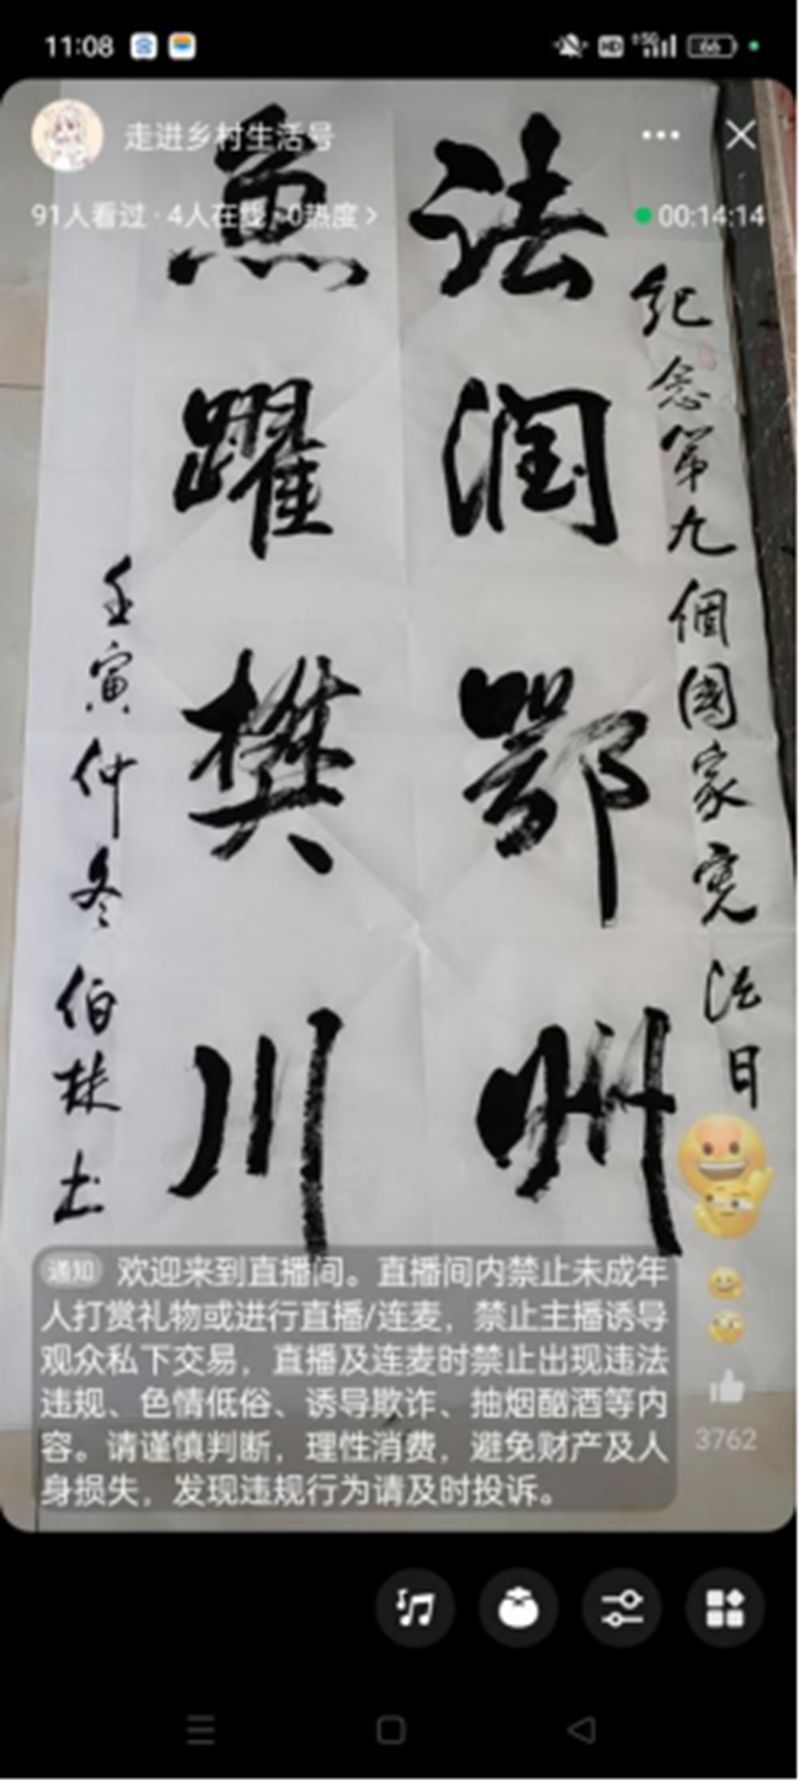 11:08
HD 5G 66
走进乡村生活号
91人看过 · 4人在线 · 0热度 >
00:14:14
紀念第九個國家憲法日
法潤鄂州
魚躍樊川
壬寅仲冬伯扶书
通知 欢迎来到直播间。直播间内禁止未成年
人打赏礼物或进行直播/连麦，禁止主播诱导
观众私下交易，直播及连麦时禁止出现违法
违规、色情低俗、诱导欺诈、抽烟酗酒等内
容。请谨慎判断，理性消费，避免财产及人
身损失，发现违规行为请及时投诉。
3762